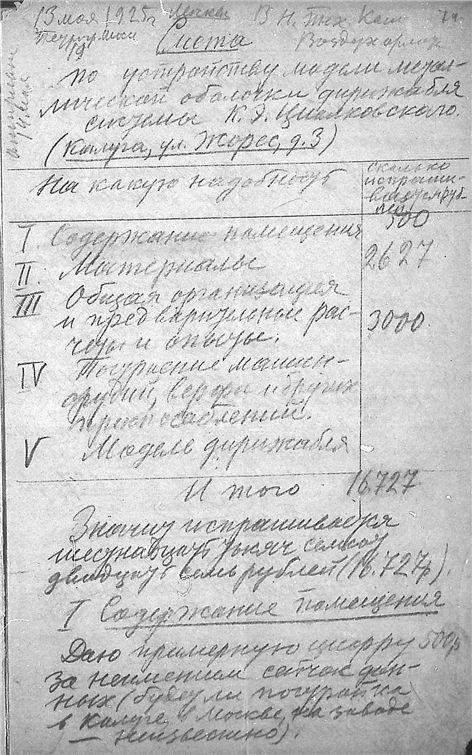 13 мая 1925 г Москва В Н. Тех. Ком
Воздухофлот
Смета
по устройству модели метал-
лической оболочки дирижабля
системы К. Э. Циолковского.
(Калуга, ул. Жорес, д. 3)
На какую надобность
сколько
испраши-
вается руб-
лей
I Содержание помещения 500
II. Материалы 2627
III Общая организация
и предварительные рас-
четы и опыты. 3000
IV Построение машин-
орудий, верфи и других
приспособлений.
V Модель дирижабля
Итого 16.727
Значит испрашивается
шестнадцать тысяч семьсот
двадцать семь рублей (16.727р).
I Содержание помещения
Даю примерную цифру 500р
за неимением сейчас дан-
ных (будет ли постройка
в Калуге, в Москве, на заводе
— неизвестно).